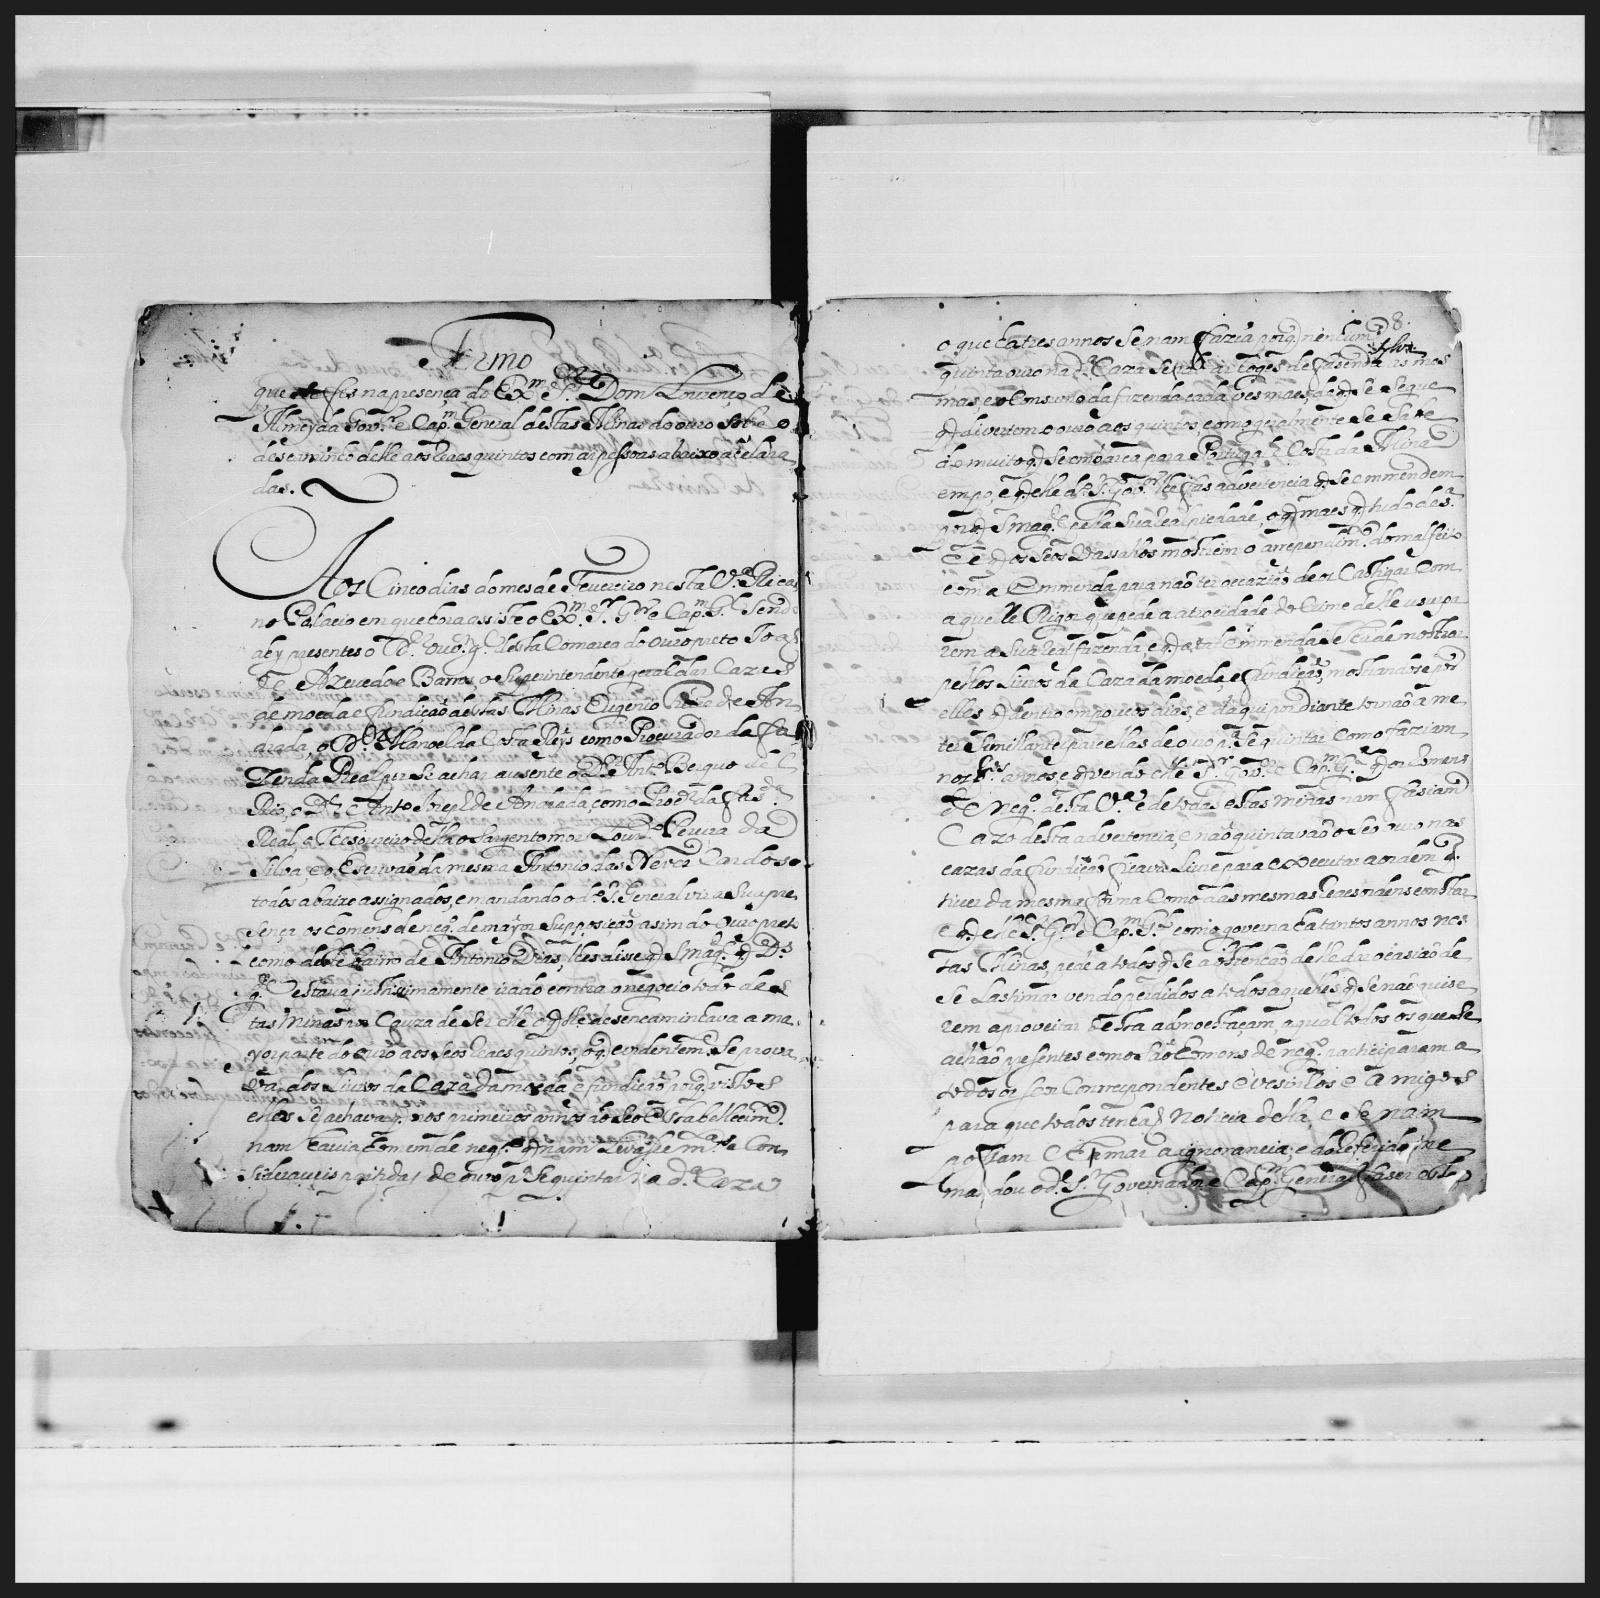 Termo
que se fes na presença do Ex.mo S.r Dom Lourenço de
Almeyda Gov.or e Cap.m General destas Minas do ouro sobre o
descaminho delle aos Reaes quintos com as pessoas abaixo declara
das.
Aos Cinco dias do mes de Fevereiro nesta V.a Rica,
no Palacio em que hora assiste o Ex.mo S.r G.or e Cap.m G.l Sendo
ahy presentes o D.r ouv.or g.l desta Comarca do ouro preto Joaõ
de Azevedo e Barros, o Superintendente geral das Cazas
de moeda e fundiçaõ destas Minas Eugenio Freire de An
drada, o D.r Manoel da Costa Reys como Procurador da fa
zenda Real por se achar auzente o D.r Ant.o Berquo de L
Rio, e D.r Ant.o de Andrada como da faz.da
Real, o Thesoureiro della o Sargento mor Lour.ço Pereira da
Silva, e o Escrivaõ da mesma Antonio das Neves Cardoso
todos abaixo assignados, e mandando o d.o S.r General vir a Sua pre
sença os homens de neg.o de mayor Supposiçaõ asim do ouro preto
como deste bairro de Antonio Dias, lhes disse q S Mag.e q D.s
g.e estava justissimamente irado contra o negocio todo des
tas Minas por Cauza de Ser elle o q lhe desencaminhava a ma
yor parte do ouro aos Seos Reaes quintos, o q evidentem.te Se prova
va dos Livros da Caza da moeda, e fundiçaõ, porq vistos
elles Se achava q nos primeiros annos do Seo Estabellecim.to
nam havia homem de neg.o q nam Levasse m.tas e Con
sideraveis partidas de ouro p.a Se quintar na d.a Caza
8.
o que ha tres annos Se nam fazia porq nenhum
quinta ouro na d.a Caza Sendo as de fazenda as mes
mas, e o Consumo da fazenda cada ves mais, de q Se Segue
q divertem o ouro aos quintos como geralmente Se Sabe
do muito q Se embarca para Portugal, e Costa da Mina
e q elle d.o S.r Gov.or lhe fas advertencia q Se emmendem
porq S Mag.e pella Sua real piedade, o q mais q tudo des.a
he q os Seos Vassalos mostrem o arrependim.to do mal feito
com a Emmenda para naõ ter occaziaõ de os Castigar Com
aquelle Rigor que pede a atrocidade do Crime de lhe usurpa
rem a Sua Real fazenda, e q a tal Emmenda Se ha de mostrar
pellos Livros da Caza da moeda, e fundiçaõ, mostrandose por
elles q dentro em poucos dias, e daqui por diante tornaõ a me
ter Semilhantes parcellas de ouro p.a Se quintar Como faziam
nos annos, e q vendo elle S.r Gov.or e Cap.m G.l q os homens
de neg.o desta V.a e de todas estas minas nam fasiam
Cazo desta advertencia, e naõ quintavaõ o Seo ouro nas
cazas da fundiçaõ ficava Livre para executar a ordem q
tiver da mesma forma Como das mesmas Reaes ordens constar
e q elle S.r G.or e Cap.m G.l como governa ha tantos annos nes
tas Minas, pede a todos q Se abstenhaõ de lhe dar ocasiaõ de
Se Lastimar vendo perdidos a todos aquelles q Se naõ quise
rem aproveitar desta admoestaçam, a qual todos os que Se
achaõ presentes como Saõ homens de neg.o participaram a
todos os Seos Correspondentes Vesinhos e Amigos
para que todos tenhaõ noticia della, e Se nam
possam chamar a ignorancia; e do referido me
mandou o d.o S.r Governador e Cap.m General faser este